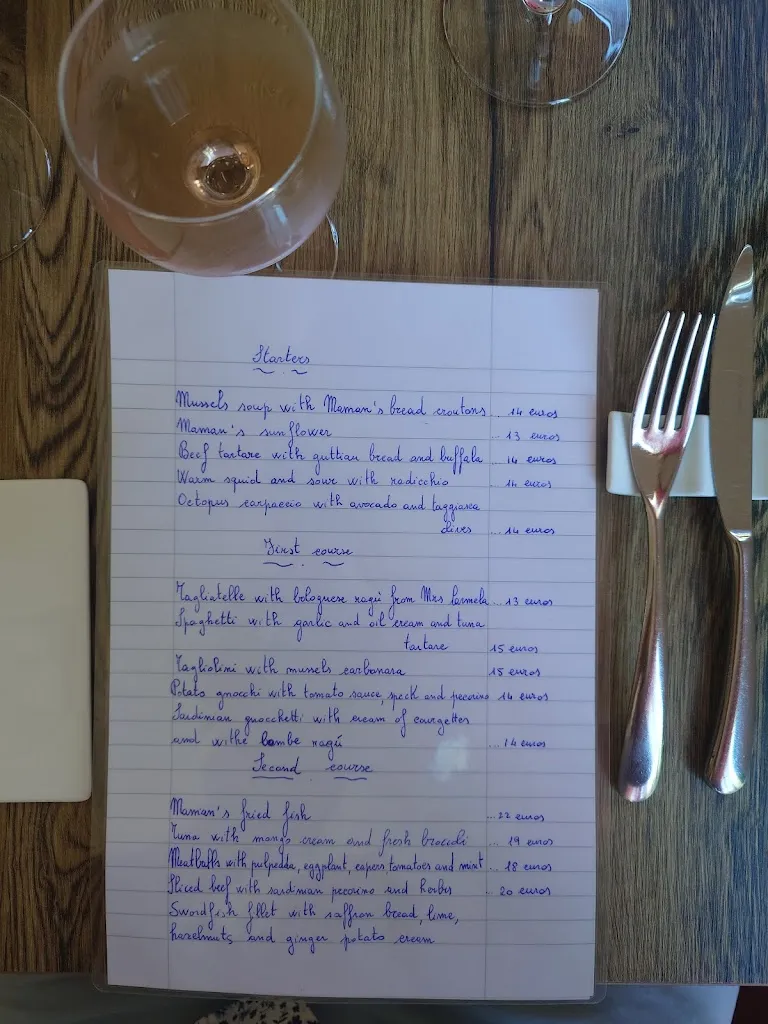 Starters
Mussels soup with Maman's bread croutons... 14 euros
Maman's sunflower ... 13 euros
Beef tartare with guttiau bread and buffala ... 14 euros
Warm squid and sour with radicchio ... 14 euros
Octopus carpaccio with avocado and taggiasca
olives ... 14 euros
First course
Tagliatelle with bolognese ragù from Mrs Carmela... 13 euros
Spaghetti with garlic and oil cream and tuna
tartare 15 euros
Tagliolini with mussels carbonara 15 euros
Potato gnocchi with tomato sauce, speck and pecorino 14 euros
Sardinian gnocchetti with cream of courgettes
and withe lambe ragù ... 14 euros
Second course
Maman's fried fish ... 22 euros
Tuna with mango cream and fresh broccoli ... 19 euros
Meatballs with eggplant, capers, tomatoes and mint ... 18 euros
Sliced beef with sardinian pecorino and herbes ... 20 euros
Swordfish fillet with saffron bread, lime,
hazelnuts and ginger potato cream